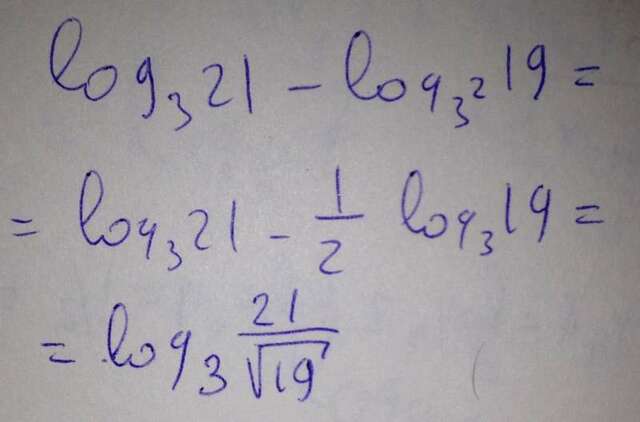 log₃21 - log₃²19 =
= log₃21 - 1/2 log₃19 =
= log₃ 21/√19